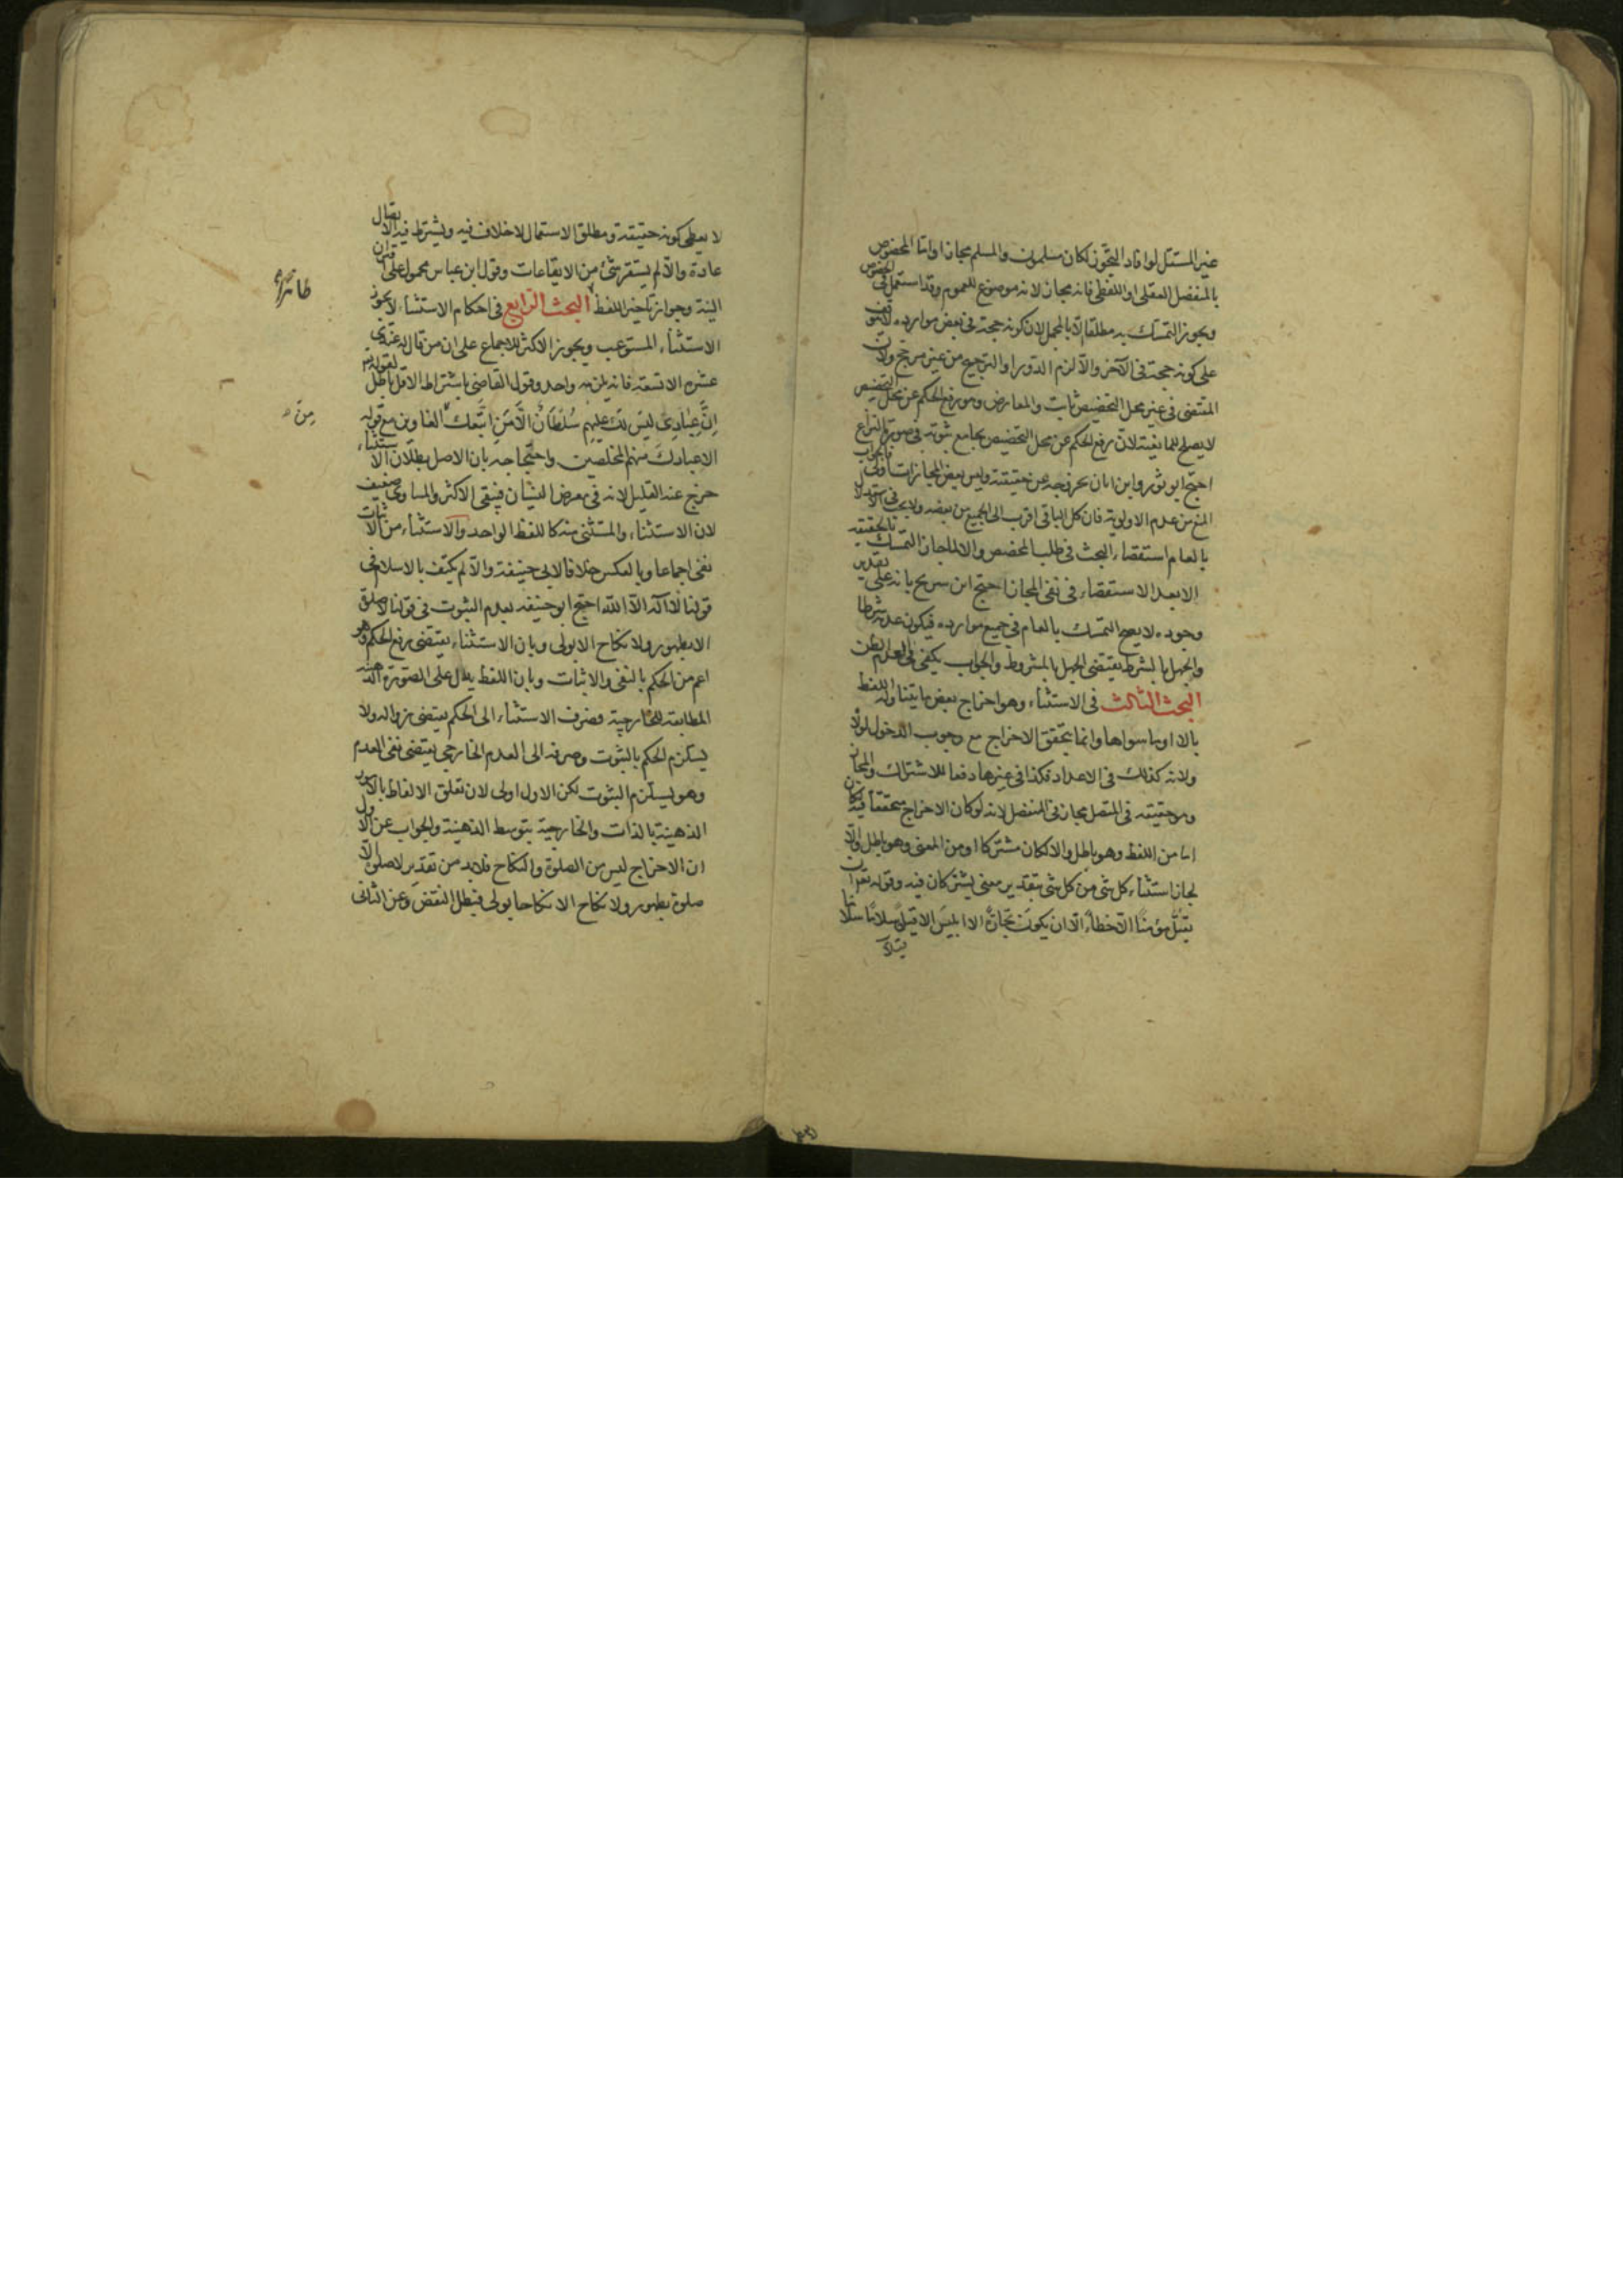 غير المستقل لو افاد التجوز لكان مسلمون والمسلم مجازا واما المخصوص
بالمنفصل العقلى او اللفظى فانه مجاز لانه موضوع للعموم وقد استعمل فى الخصوص
ويجوز التمسك به مطلقا الا بالمجمل لان كونه حجة فى بعض موارده لا يتوقف
على كونه حجة فى الآخر والا لزم الدور او الترجيح من غير مرجح ولان
المقتضى فى غير محل التخصيص ثابت والمعارض وهو رفع الحكم عن محل التخصيص
لا يصلح للمانعية لان رفع الحكم عن محل التخصيص يجامع ثبوته فى صورة النزاع
احتج ابو ثور وابن ابان بخروجه عن حقيقته وليس بعض المجازات اولى والجواب
المنع من عدم الاولوية فان كل الباقى اقرب الى الجميع من بعضه ولا يجب فى الاستدلال
بالعام استقصاء البحث فى طلب المخصص والا لما جاز التمسك بالحقيقة
الا بعد الاستقصاء فى نفى المجاز احتج ابن سريج بانه على تقدير
وجوده لا يصح التمسك بالعام فى جميع موارده فيكون عدمه شرطا
والجهل بالشرط يقتضى الجهل بالمشروط والجواب يكفى فى العدم الظن
البحث الثالث فى الاستثناء وهو اخراج بعض ما يتناوله اللفظ
بالا او ما سواها وانما يتحقق الاخراج مع وجوب الدخول لولاه
ولانه كذلك فى الاعداد فكذا فى غيرها دفعا للاشتراك والمجاز
وهو حقيقة فى المتصل مجاز فى المنفصل لانه لو كان الاخراج متحققا فيه لكان
اما من اللفظ وهو باطل والا لكان مشتركا او من المعنى وهو باطل والا
لجاز استثناء كل شى من كل شى بتقدير معنى يشتركان فيه وقوله تعالى ان
يقتل مؤمنا الا خطأ الا ان يكون تجارة الا ابليس الا قيلا سلاما سلاما
لا يعطى كونه حقيقة ومطلق الاستعمال لا خلاف فيه ويشترط فيه الاتصال
عادة والا لم يستقر شئ من الايقاعات وقول ابن عباس محمول على قران
النية وجواز تاخير اللفظ البحث الرابع فى احكام الاستثناء لا يجوز
الاستثناء المستوعب ويجوز الاكثر للاجماع على ان من قال له عندى
عشرة الا تسعة فانه يلزمه واحد وقول القاضى باشتراط الاقل باطل لقوله تع
ان عبادى ليس لك عليهم سلطان الا من اتبعك الغاوين مع قوله
من
الا عبادك منهم المخلصين واحتجاجه بان الاصل بطلان الاستثناء
خرج عنه القليل لانه فى معرض النسيان فيبقى الاكثر والمساوى ضعيف
لان الاستثناء والمستثنى منه كاللفظ الواحد والاستثناء من الاثبات
نفى اجماعا وبالعكس خلافا لابى حنيفة والا لم يكتف بالاسلام فى
قولنا لا اله الا الله احتج ابو حنيفة بعدم الثبوت فى قولنا لا صلوة
الا بطهور ولا نكاح الا بولى وبان الاستثناء يقتضى رفع الحكم وهو
اعم من الحكم بالنفى والاثبات وبان اللفظ يدل على الصورة الذهنية
المطابقة للخارجية فصرف الاستثناء الى الحكم يقتضى زواله ولا
يستلزم الحكم بالثبوت وصرفه الى العدم الخارجى يقتضى نفى العدم
وهو يستلزم الثبوت لكن الاول اولى لان تعلق الالفاظ بالامور
الذهنية بالذات والخارجية بتوسط الذهنية والجواب عن الاول
ان الاخراج ليس من الصلوة والنكاح فلابد من تقدير لا صلوة الا
صلوة بطهور ولا نكاح الا نكاحا بولى فبطل النقض وعن الثانى